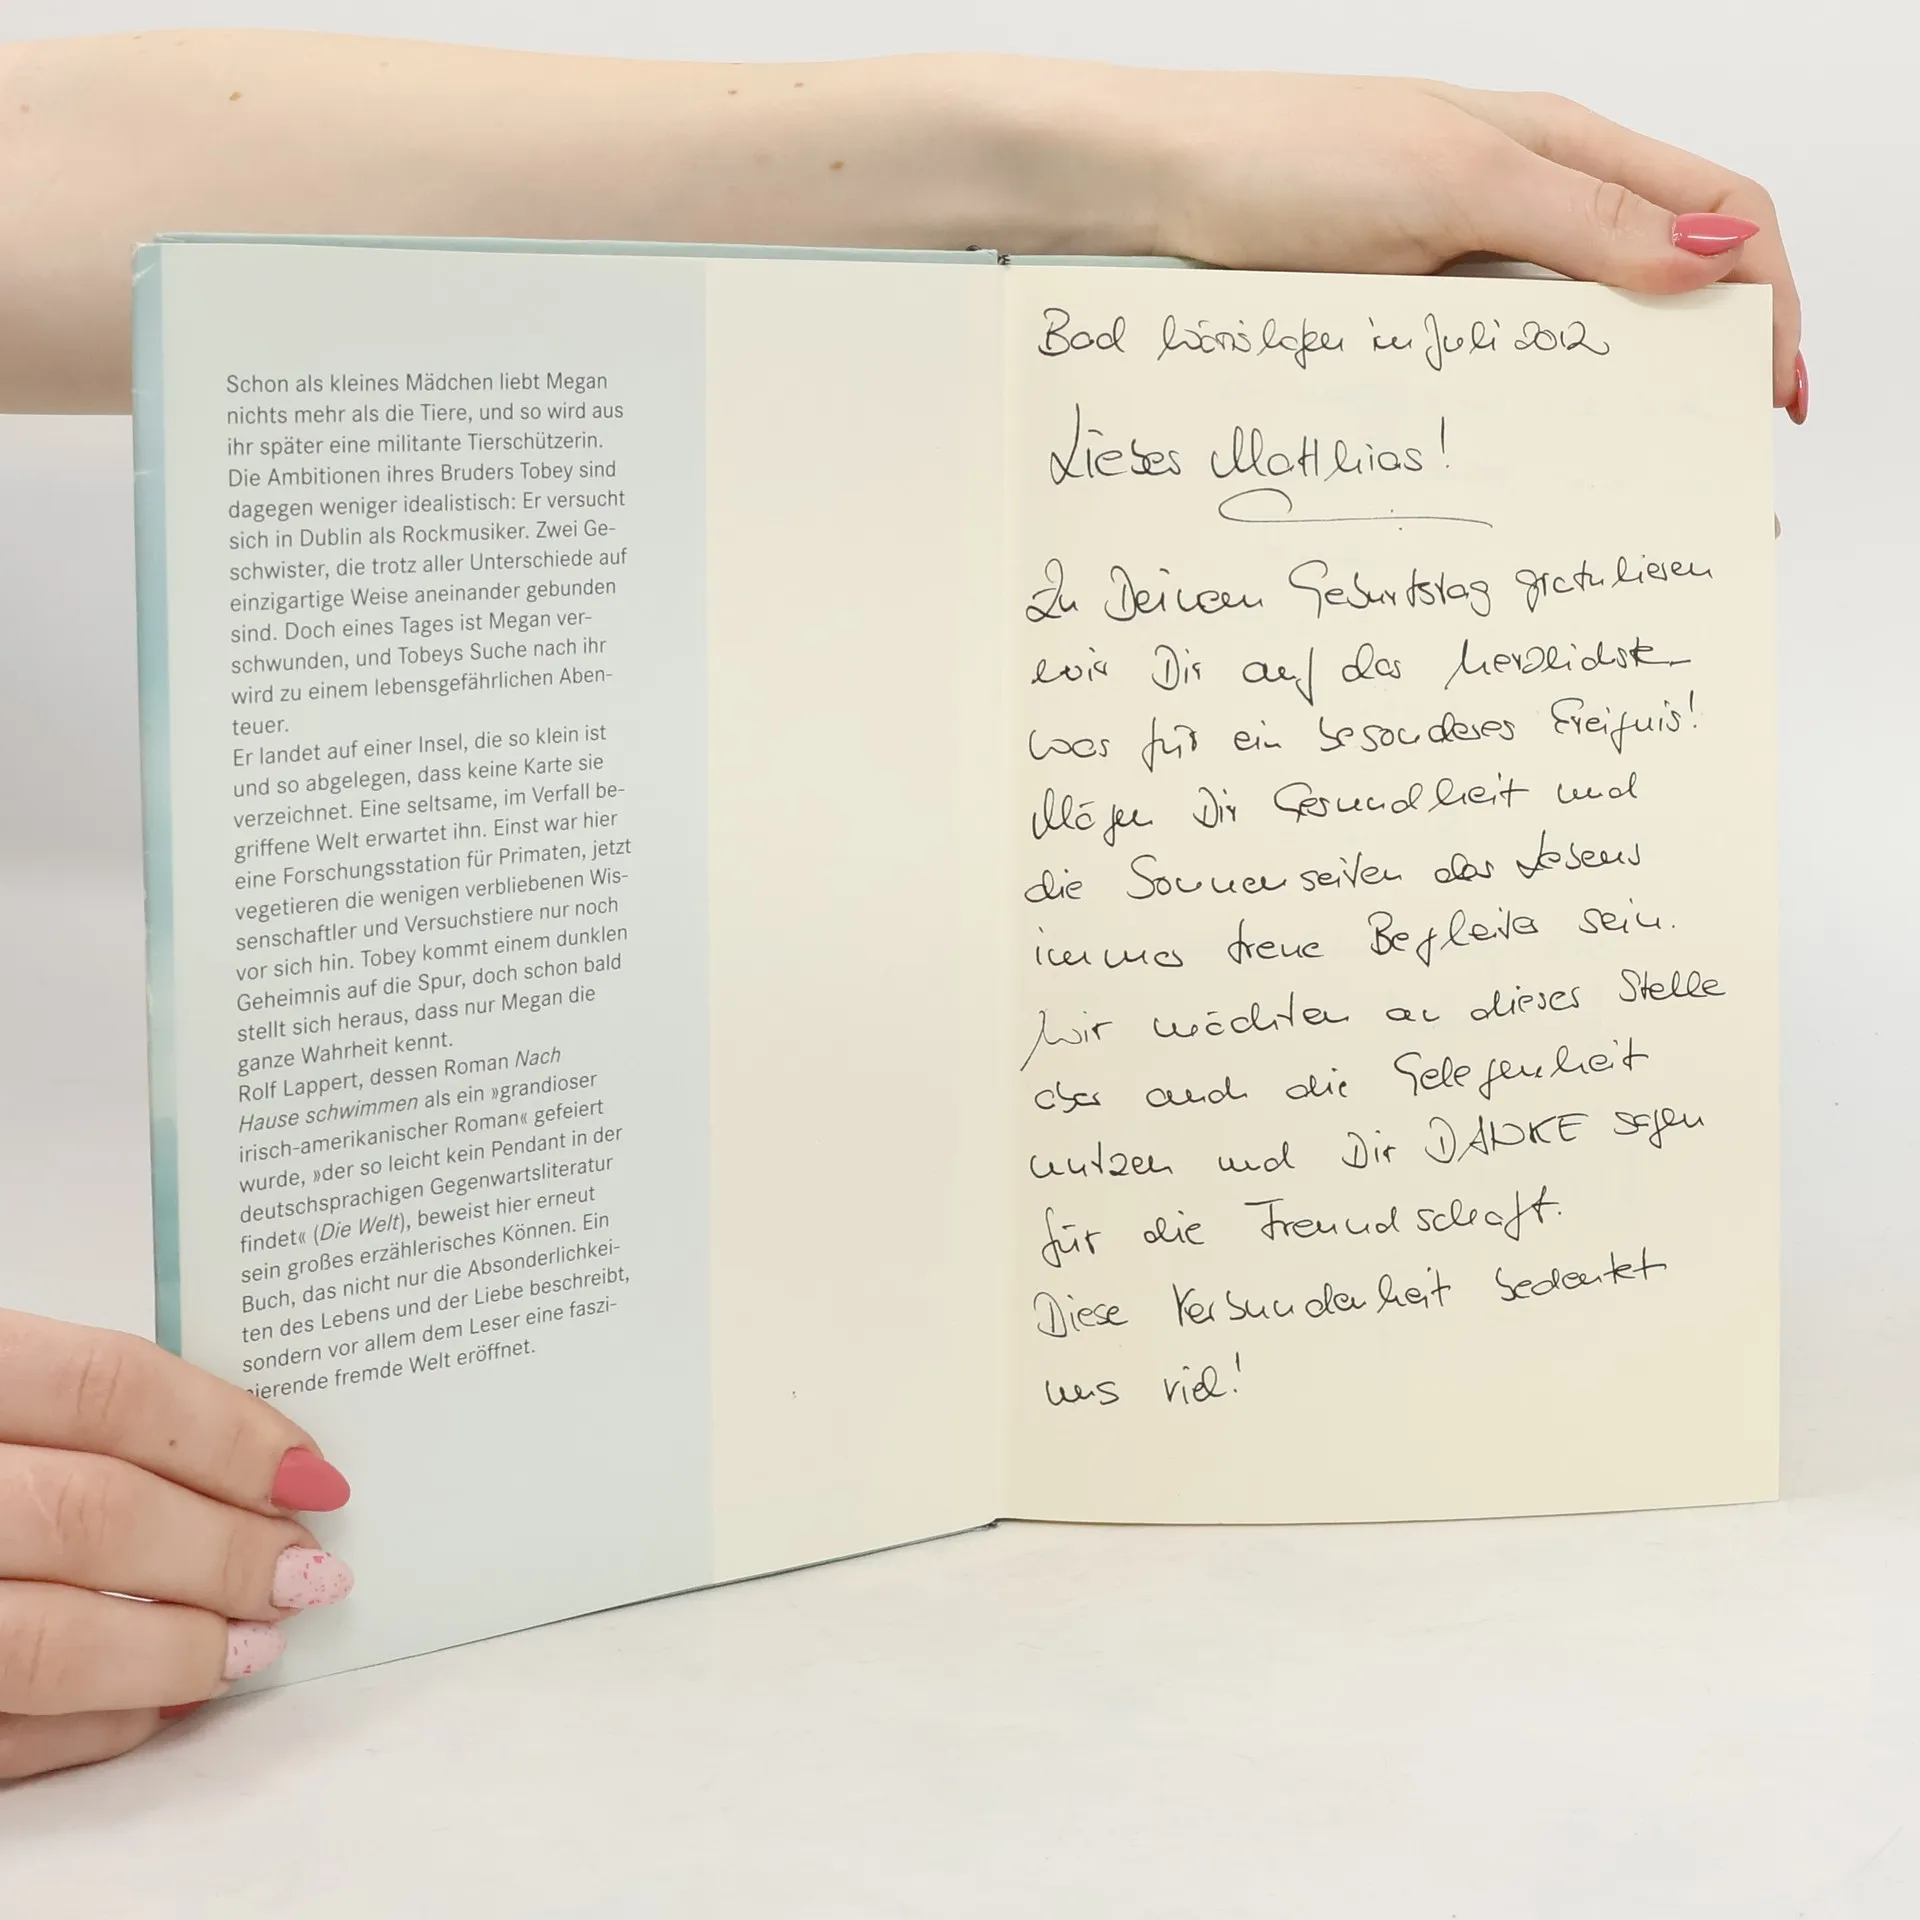 Schon als kleines Mädchen liebt Megan
nichts mehr als die Tiere, und so wird aus
ihr später eine militante Tierschützerin.
Die Ambitionen ihres Bruders Tobey sind
dagegen weniger idealistisch: Er versucht
sich in Dublin als Rockmusiker. Zwei Ge-
schwister, die trotz aller Unterschiede auf
einzigartige Weise aneinander gebunden
sind. Doch eines Tages ist Megan ver-
schwunden, und Tobeys Suche nach ihr
wird zu einem lebensgefährlichen Aben-
teuer.
Er landet auf einer Insel, die so klein ist
und so abgelegen, dass keine Karte sie
verzeichnet. Eine seltsame, im Verfall be-
griffene Welt erwartet ihn. Einst war hier
eine Forschungsstation für Primaten, jetzt
vegetieren die wenigen verbliebenen Wis-
senschaftler und Versuchstiere nur noch
vor sich hin. Tobey kommt einem dunklen
Geheimnis auf die Spur, doch schon bald
stellt sich heraus, dass nur Megan die
ganze Wahrheit kennt.
Rolf Lappert, dessen Roman Nach
Hause schwimmen als ein »grandioser
irisch-amerikanischer Roman« gefeiert
wurde, »der so leicht kein Pendant in der
deutschsprachigen Gegenwartsliteratur
findet« (Die Welt), beweist hier erneut
sein großes erzählerisches Können. Ein
Buch, das nicht nur die Absonderlichkei-
ten des Lebens und der Liebe beschreibt,
sondern vor allem dem Leser eine faszi-
nierende fremde Welt eröffnet.
Bad Wörishofen im Juli 2012
Lieber Matthias!
Zu Deinem Geburtstag gratulieren
wir Dir auf das herzlichste_
was für ein besonderes Ereignis!
Mögen Dir Gesundheit und
die Sonnenseiten des Lebens
immer treue Begleiter sein.
Wir möchten an dieser Stelle
aber auch die Gelegenheit
nutzen und Dir DANKE sagen
für die Freundschaft.
Diese Verbundenheit bedeutet
uns viel!